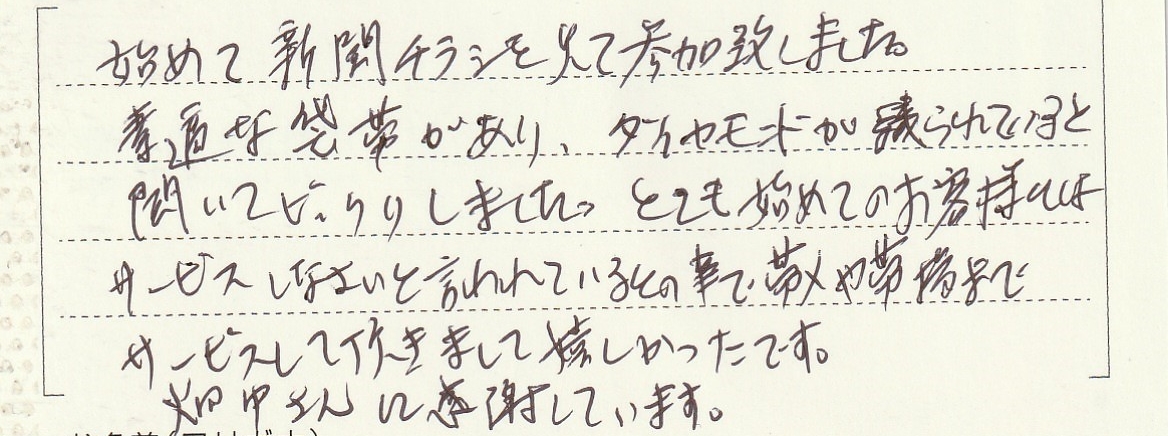 始めて新聞チラシを見て参加致しました。
普通な袋帯があり、ダイヤモンドが織られていると
聞いてびっくりしました。とても始めてのお客様には
サービスしなさいと言われているとの事で帯〆や帯揚まで
サービスして頂きまして嬉しかったです。
畑中さんに感謝しています。